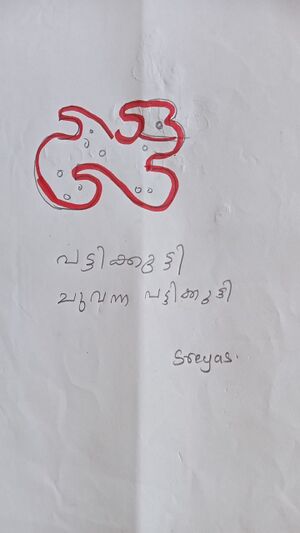 പട്ടിക്കുട്ടി
ചുവന്ന പട്ടിക്കുട്ടി
Sreyas.